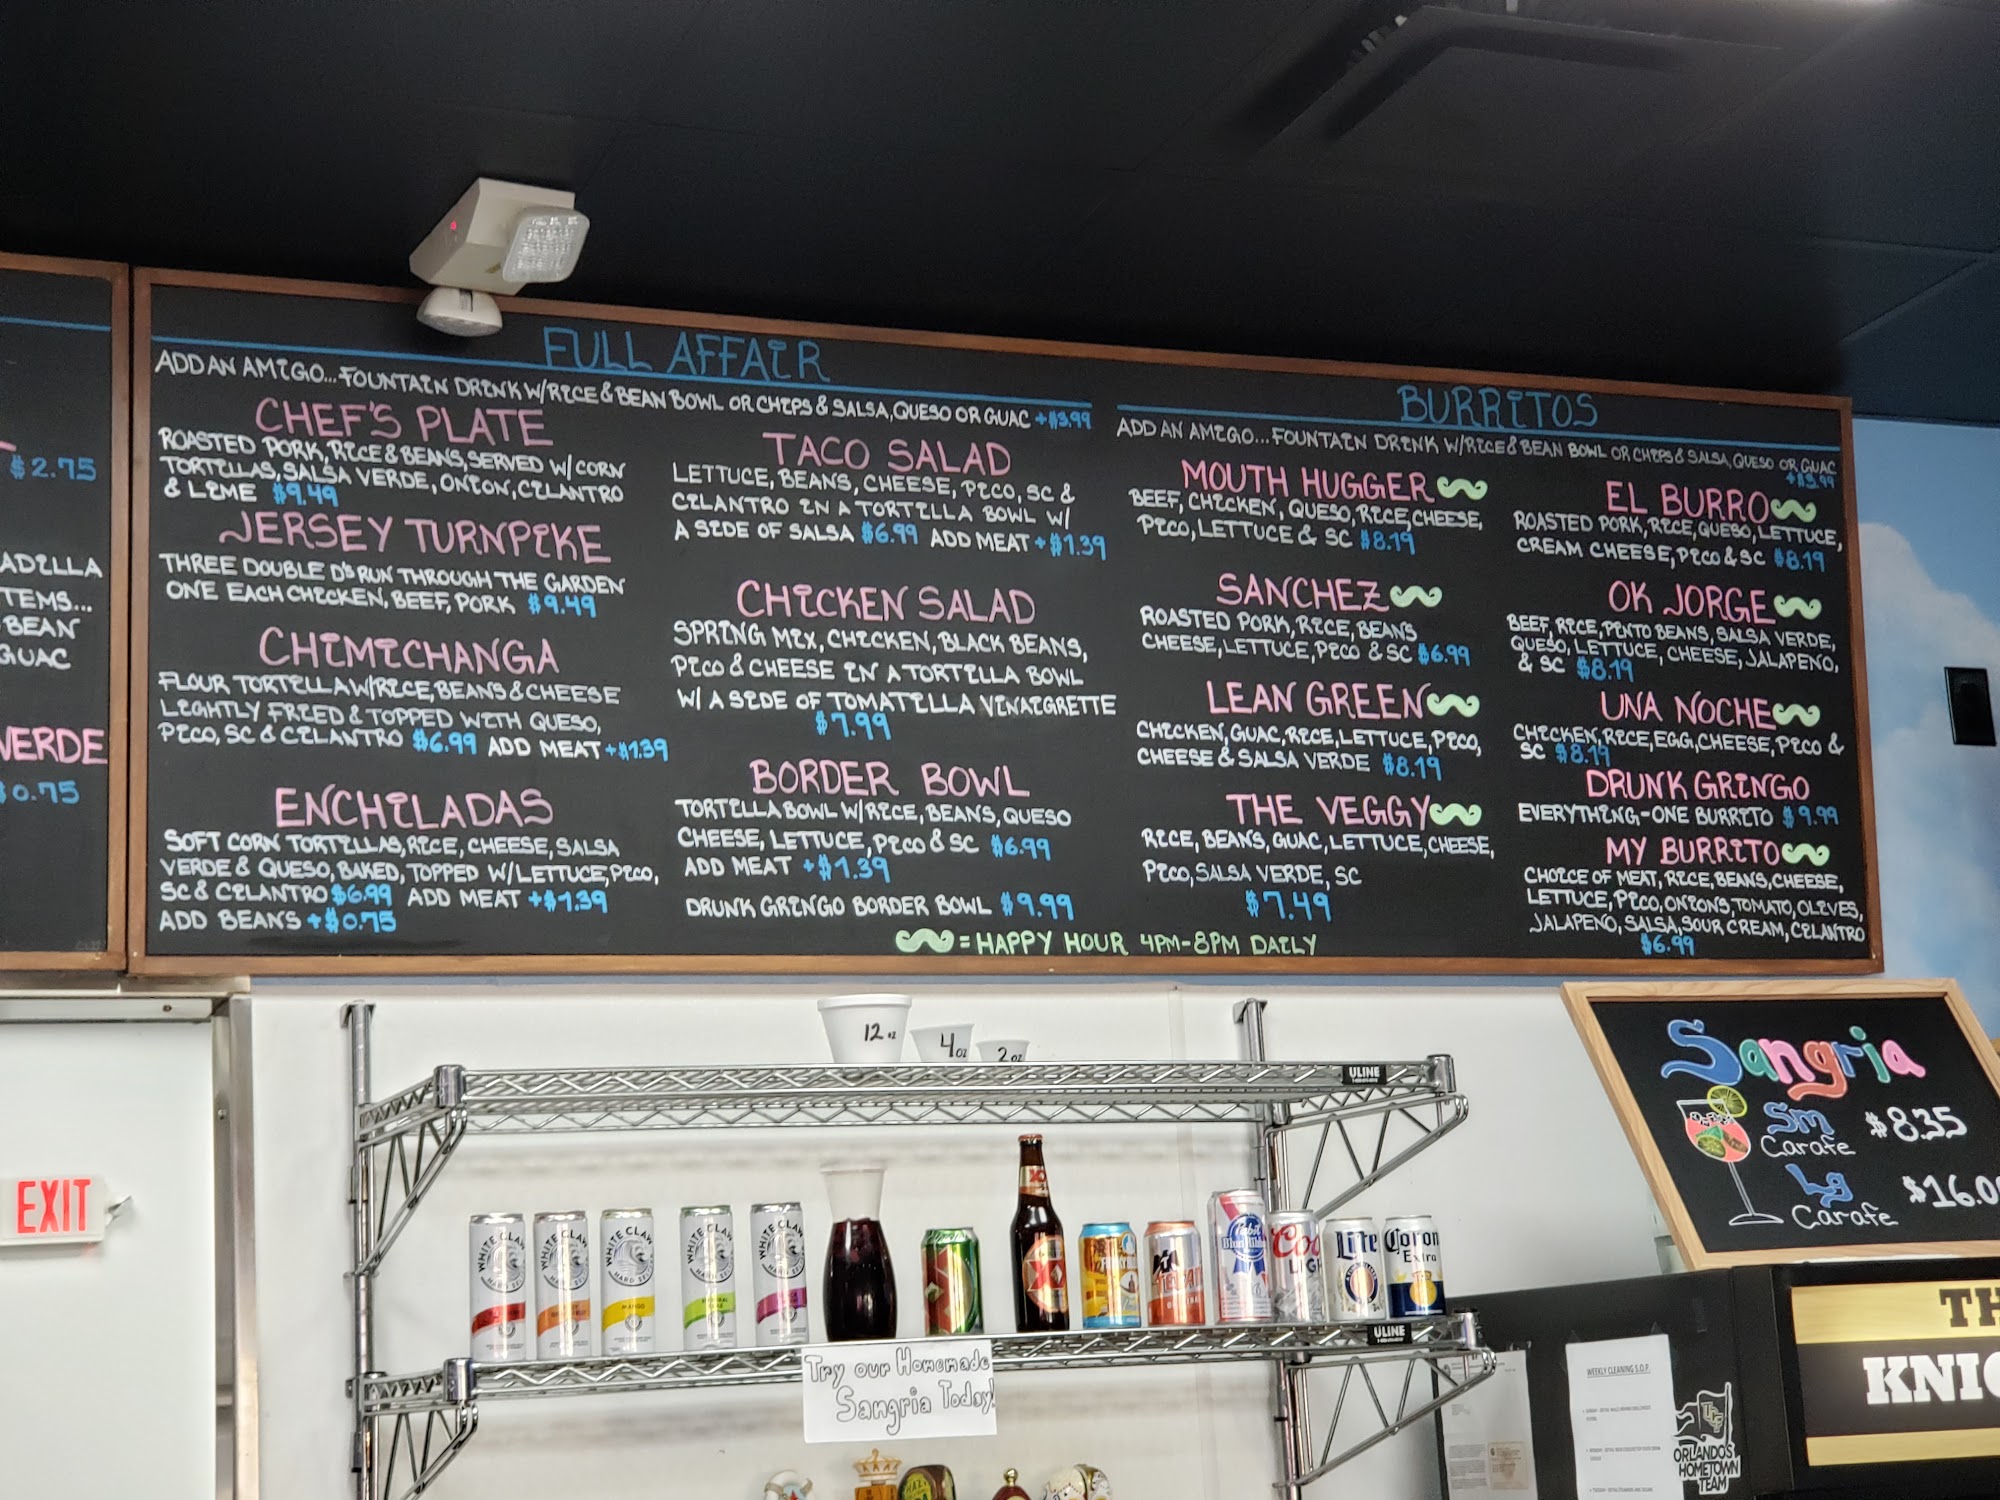 $2.75
ADILLA
TEMS...
BEAN
GUAC
VERDE
$0.75
FULL AFFAIR
ADD AN AMIGO...FOUNTAIN DRINK W/RICE & BEAN BOWL OR CHIPS & SALSA, QUESO OR GUAC +$3.99
CHEF'S PLATE
ROASTED PORK, RICE & BEANS, SERVED W/ CORN
TORTILLAS, SALSA VERDE, ONION, CILANTRO
& LIME $9.49
JERSEY TURNPIKE
THREE DOUBLE D'S RUN THROUGH THE GARDEN
ONE EACH CHICKEN, BEEF, PORK $9.49
CHIMICHANGA
FLOUR TORTILLA W/RICE, BEANS & CHEESE
LIGHTLY FRIED & TOPPED WITH QUESO,
PICO, SC & CILANTRO $6.99 ADD MEAT +$1.39
ENCHILADAS
SOFT CORN TORTILLAS, RICE, CHEESE, SALSA
VERDE & QUESO, BAKED, TOPPED W/LETTUCE, PICO,
SC & CILANTRO $6.99 ADD MEAT +$1.39
ADD BEANS +$0.75
TACO SALAD
LETTUCE, BEANS, CHEESE, PICO, SC &
CILANTRO IN A TORTILLA BOWL W/
A SIDE OF SALSA $6.99 ADD MEAT +$1.39
CHICKEN SALAD
SPRING MIX, CHICKEN, BLACK BEANS,
PICO & CHEESE IN A TORTILLA BOWL
W/ A SIDE OF TOMATILLA VINAIGRETTE
$7.99
BORDER BOWL
TORTILLA BOWL W/RICE, BEANS, QUESO
CHEESE, LETTUCE, PICO & SC $6.99
ADD MEAT +$1.39
DRUNK GRINGO BORDER BOWL $9.99
BURRITOS
ADD AN AMIGO...FOUNTAIN DRINK W/RICE & BEAN BOWL OR CHIPS & SALSA, QUESO OR GUAC
+$3.99
MOUTH HUGGER
BEEF, CHICKEN, QUESO, RICE, CHEESE,
PICO, LETTUCE & SC $8.19
SANCHEZ
ROASTED PORK, RICE, BEANS
CHEESE, LETTUCE, PICO & SC $6.99
LEAN GREEN
CHICKEN, GUAC, RICE, LETTUCE, PICO,
CHEESE & SALSA VERDE $8.19
THE VEGGY
RICE, BEANS, GUAC, LETTUCE, CHEESE,
PICO, SALSA VERDE, SC
$7.49
EL BURRO
ROASTED PORK, RICE, QUESO, LETTUCE,
CREAM CHEESE, PICO & SC $8.19
OK JORGE
BEEF, RICE, PINTO BEANS, SALSA VERDE,
QUESO, LETTUCE, CHEESE, JALAPENO,
& SC $8.19
UNA NOCHE
CHICKEN, RICE, EGG, CHEESE, PICO &
SC $8.19
DRUNK GRINGO
EVERYTHING-ONE BURRITO $9.99
MY BURRITO
CHOICE OF MEAT, RICE, BEANS, CHEESE,
LETTUCE, PICO, ONIONS, TOMATO, OLIVES,
JALAPENO, SALSA, SOUR CREAM, CILANTRO
$6.99
= HAPPY HOUR 4PM-8PM DAILY
12 oz
4 oz
2 oz
ULINE
Sangria
Sm
Carafe $8.35
Lg
Carafe $16.0
EXIT
WHITE CLAW
HARD
WHITE CLAW
HARD
WHITE CLAW
HARD
MANGO
WHITE CLAW
HARD
WHITE CLAW
HARD
Pabst
Blue Ribbon
Coo
LIGH
Lite
Coron
Extra
ULINE
Try our Homemade
Sangria Today!
WEEKLY CLEANING S.O.P.
ORLANDO'S
HOMETOWN
TEAM
TH
KNIG